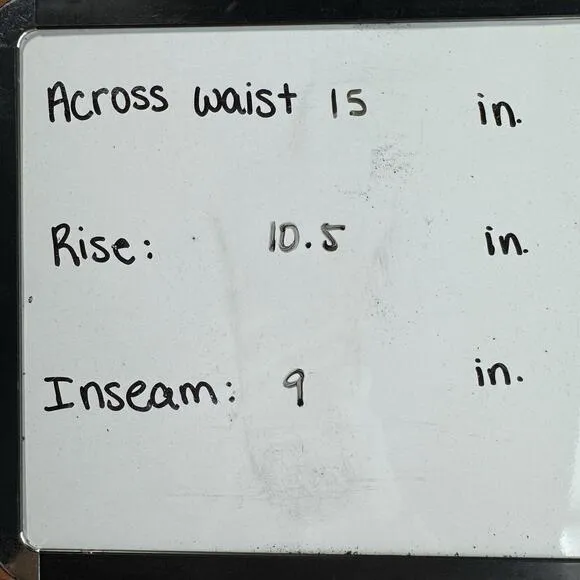 Across waist 15 in.
Rise: 10.5 in.
Inseam: 9 in.